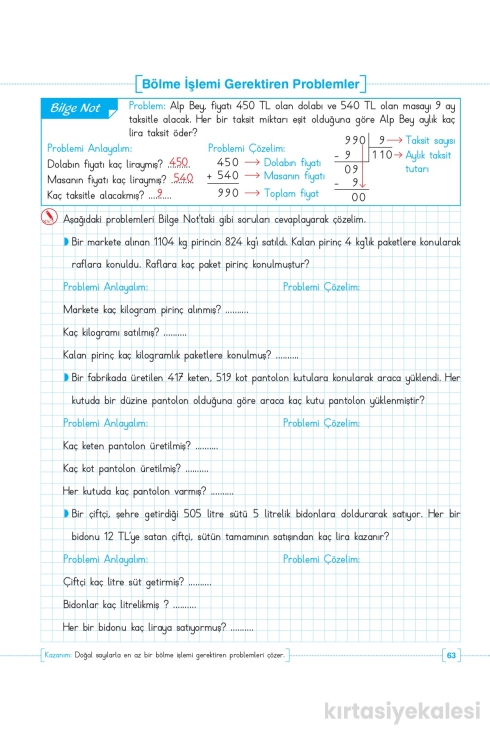 Bölme İşlemi Gerektiren Problemler
Bilge Not
Problem: Alp Bey, fiyatı 450 TL olan dolabı ve 540 TL olan masayı 9 ay
taksitle alacak. Her bir taksit miktarı eşit olduğuna göre Alp Bey aylık kaç
lira taksit öder?
Problemi Anlayalım:
Dolabın fiyatı kaç liraymış? 450
Masanın fiyatı kaç liraymış? 540
Kaç taksitle alacakmış? ....9....
Problemi Çözelim:
450 → Dolabın fiyatı
+ 540 → Masanın fiyatı
990 → Toplam fiyat
990 9 → Taksit sayısı
- 9 110 → Aylık taksit
09 tutarı
- 9
00
Aşağıdaki problemleri Bilge Not'taki gibi soruları cevaplayarak çözelim.
Bir markete alınan 1104 kg pirincin 824 kg'ı satıldı. Kalan pirinç 4 kg'lık paketlere konularak
raflara konuldu. Raflara kaç paket pirinç konulmuştur?
Problemi Anlayalım: Problemi Çözelim:
Markete kaç kilogram pirinç alınmış? ..........
Kaç kilogramı satılmış? ..........
Kalan pirinç kaç kilogramlık paketlere konulmuş? ..........
Bir fabrikada üretilen 417 keten, 519 kot pantolon kutulara konularak araca yüklendi. Her
kutuda bir düzine pantolon olduğuna göre araca kaç kutu pantolon yüklenmiştir?
Problemi Anlayalım: Problemi Çözelim:
Kaç keten pantolon üretilmiş? ..........
Kaç kot pantolon üretilmiş? ..........
Her kutuda kaç pantolon varmış? ..........
Bir çiftçi, şehre getirdiği 505 litre sütü 5 litrelik bidonlara doldurarak satıyor. Her bir
bidonu 12 TL'ye satan çiftçi, sütün tamamının satışından kaç lira kazanır?
Problemi Anlayalım: Problemi Çözelim:
Çiftçi kaç litre süt getirmiş? ..........
Bidonlar kaç litrelikmiş ? ..........
Her bir bidonu kaç liraya satıyormuş? ..........
Kazanım: Doğal sayılarla en az bir bölme işlemi gerektiren problemleri çözer.
63
kırtasiyekalesi